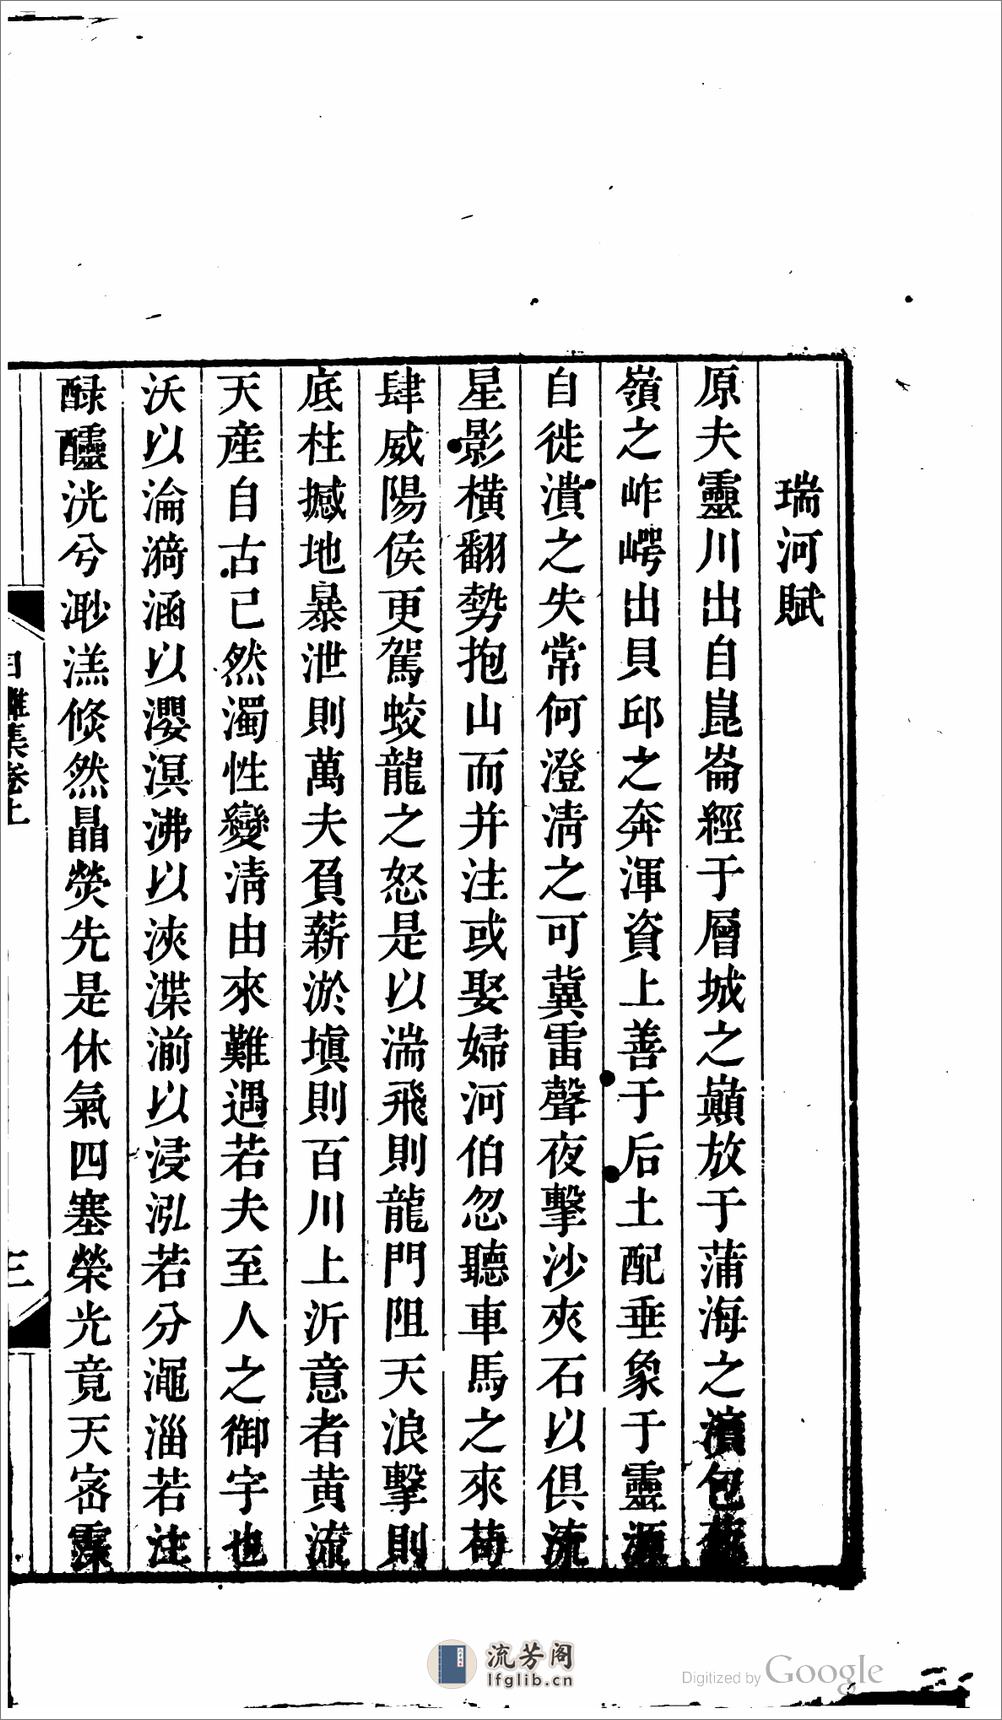 瑞河賦
原夫靈川出自崑崙經于層城之巔放于蒲海之濱包
嶺之岞崿出貝邱之奔渾資上善于后土配垂象于靈源
自徙潰之失常何澄清之可冀雷聲夜擊沙夾石以俱流
星影橫翻勢抱山而并注或娶婦河伯忽聽車馬之來苟
肆威陽侯更駕蛟龍之怒是以湍飛則龍門阻天浪擊則
底柱撼地暴泄則萬夫負薪淤塡則百川上泝意者黄流
天産自古已然濁性變清由來難遇若夫至人之御宇也
沃以淪漪涵以瀴溟沸以浹渫湔以浸泓若分澠淄若注
醁醽洸兮渺漾倐然晶熒先是休氣四塞榮光竟天宻霂
集卷上
三
流芳阁
lfglib.cn
Digitized by Google